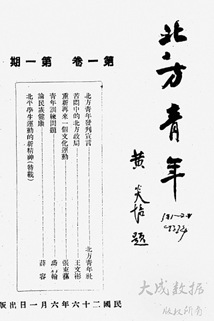 北方青年
黄炎培题
第一卷　第一期
北方青年發刊宣言　北方青年社
苦悶中的北方政局　王文彬
重新再來一個文化運動　張東蓀
青年訓練問題
論民族健康
北平學生運動的新精神（特載）
民國二十六年六月一日出版
大成数据
版权所有